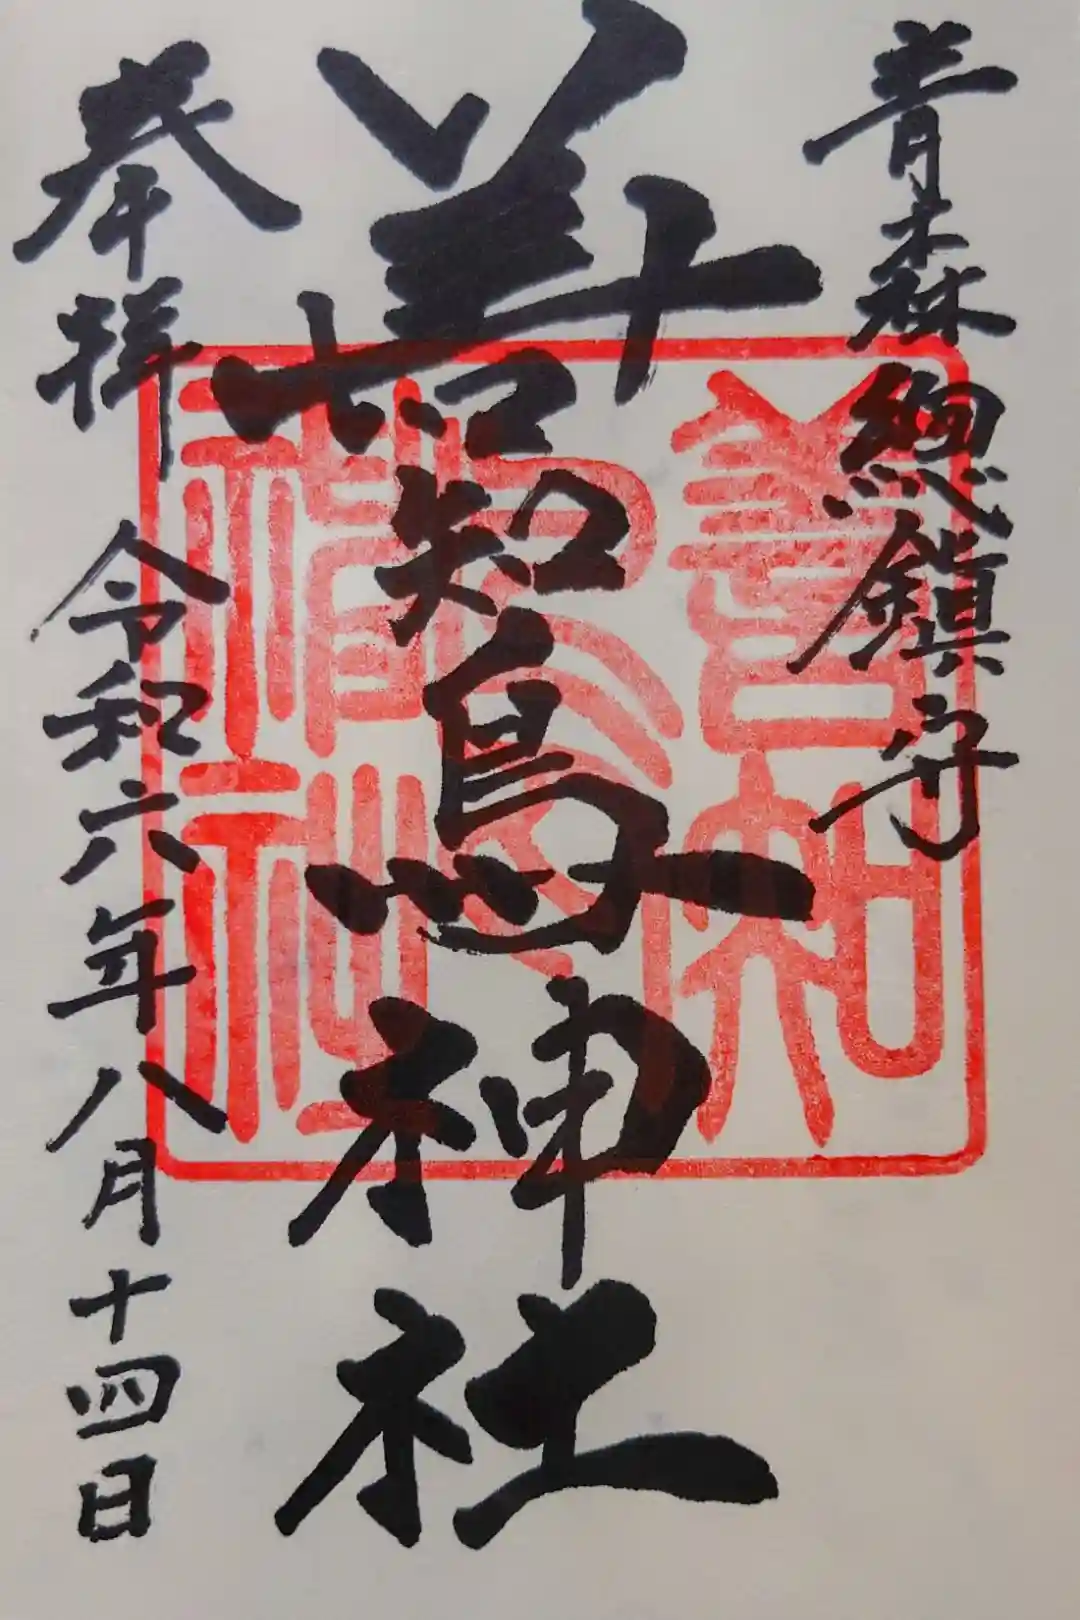 青森總鎮守
善知鳥神社
奉拝 令和六年八月十四日
善知鳥神社